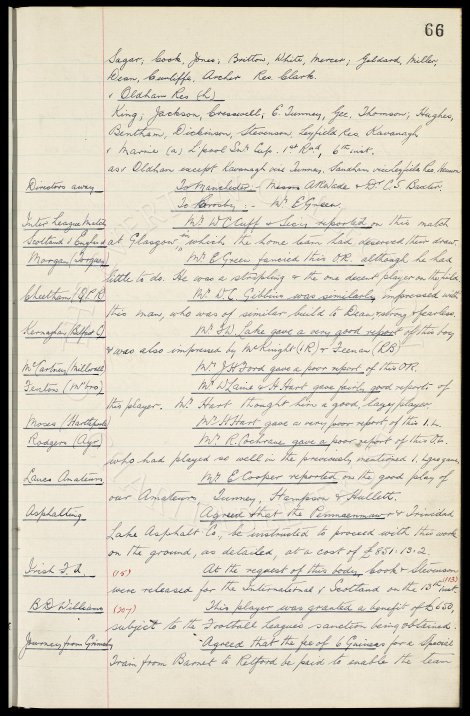 66
Sagar; Cook, Jones; Britton, White, Mercer; Geldard, Miller,
Dean, Cunliffe, Archer Res Clark.
v Oldham Res (H)
King; Jackson, Cresswell; E. Tunney, Gee, Thomson; Hughes,
Bentham, Dickinson, Stevenson, Leyfield Res. Kavanagh
v Marine (a) L'pool Snr Cup. 1st Rnd, 6th inst.
as v Oldham except Kavanagh vice Tunney, Sandham vice Leyfield Res.
Directors away To Manchester:- Messrs & Dr C.S. Baxter.
To Crosby:- Mr E Green.
Inter League Match Mr W.C. Cuff & Secy reported on this match
Scotland v England at Glasgow in which the home team had deserved their draw.
Morgan (Torquay) Mr E Green fancied this OR. although he had
little to do. He was a stripling & the one decent player on the field
Cheetham (Q.P.R) Mr W.C. Gibbins was similarly impressed with
this man, who was of similar build to Dean, strong & fearless.
Kernaghan (Belfast C) Mr F.W. Lake gave a very good report of this boy
& was also impressed by McKnight (IR) & Feenan (RB)
McCartney (Millwall Mr J H Ford gave a poor report of this OR.
Fenton (M'bro) Mr W Laine & H Hart gave fairly good reports of
this player. Mr Hart thought him a good, lazy player
Moses (Hartlepools Mr H Hart gave a very poor report of this I.L.
Rodgers (Ayr) Mr R. Cochrane gave a poor report of this
who had played so well in the previously mentioned I. League game
Lancs Amateurs Mr E Cooper reported on the good play of
our Amateurs, Tunney, Hampson & Hullett.
Asphalting Agreed that the Penmaenmawr & Trinidad
Lake Asphalt Co, be instructed to proceed with this work
on the ground, as detailed, at a cost of £851.13.2.
Irish F.A. (15) At the request of this body, Cook & Stevenson (113)
were released for the International v Scotland on the 13th inst.
B.D. Williams (307) This player was granted a benefit of £650,
subject to the Football League's sanction being obtained.
Journey from Grimsby Agreed that the fee of 6 Guineas for a Special
Train from Barnet to Retford be paid to enable the team